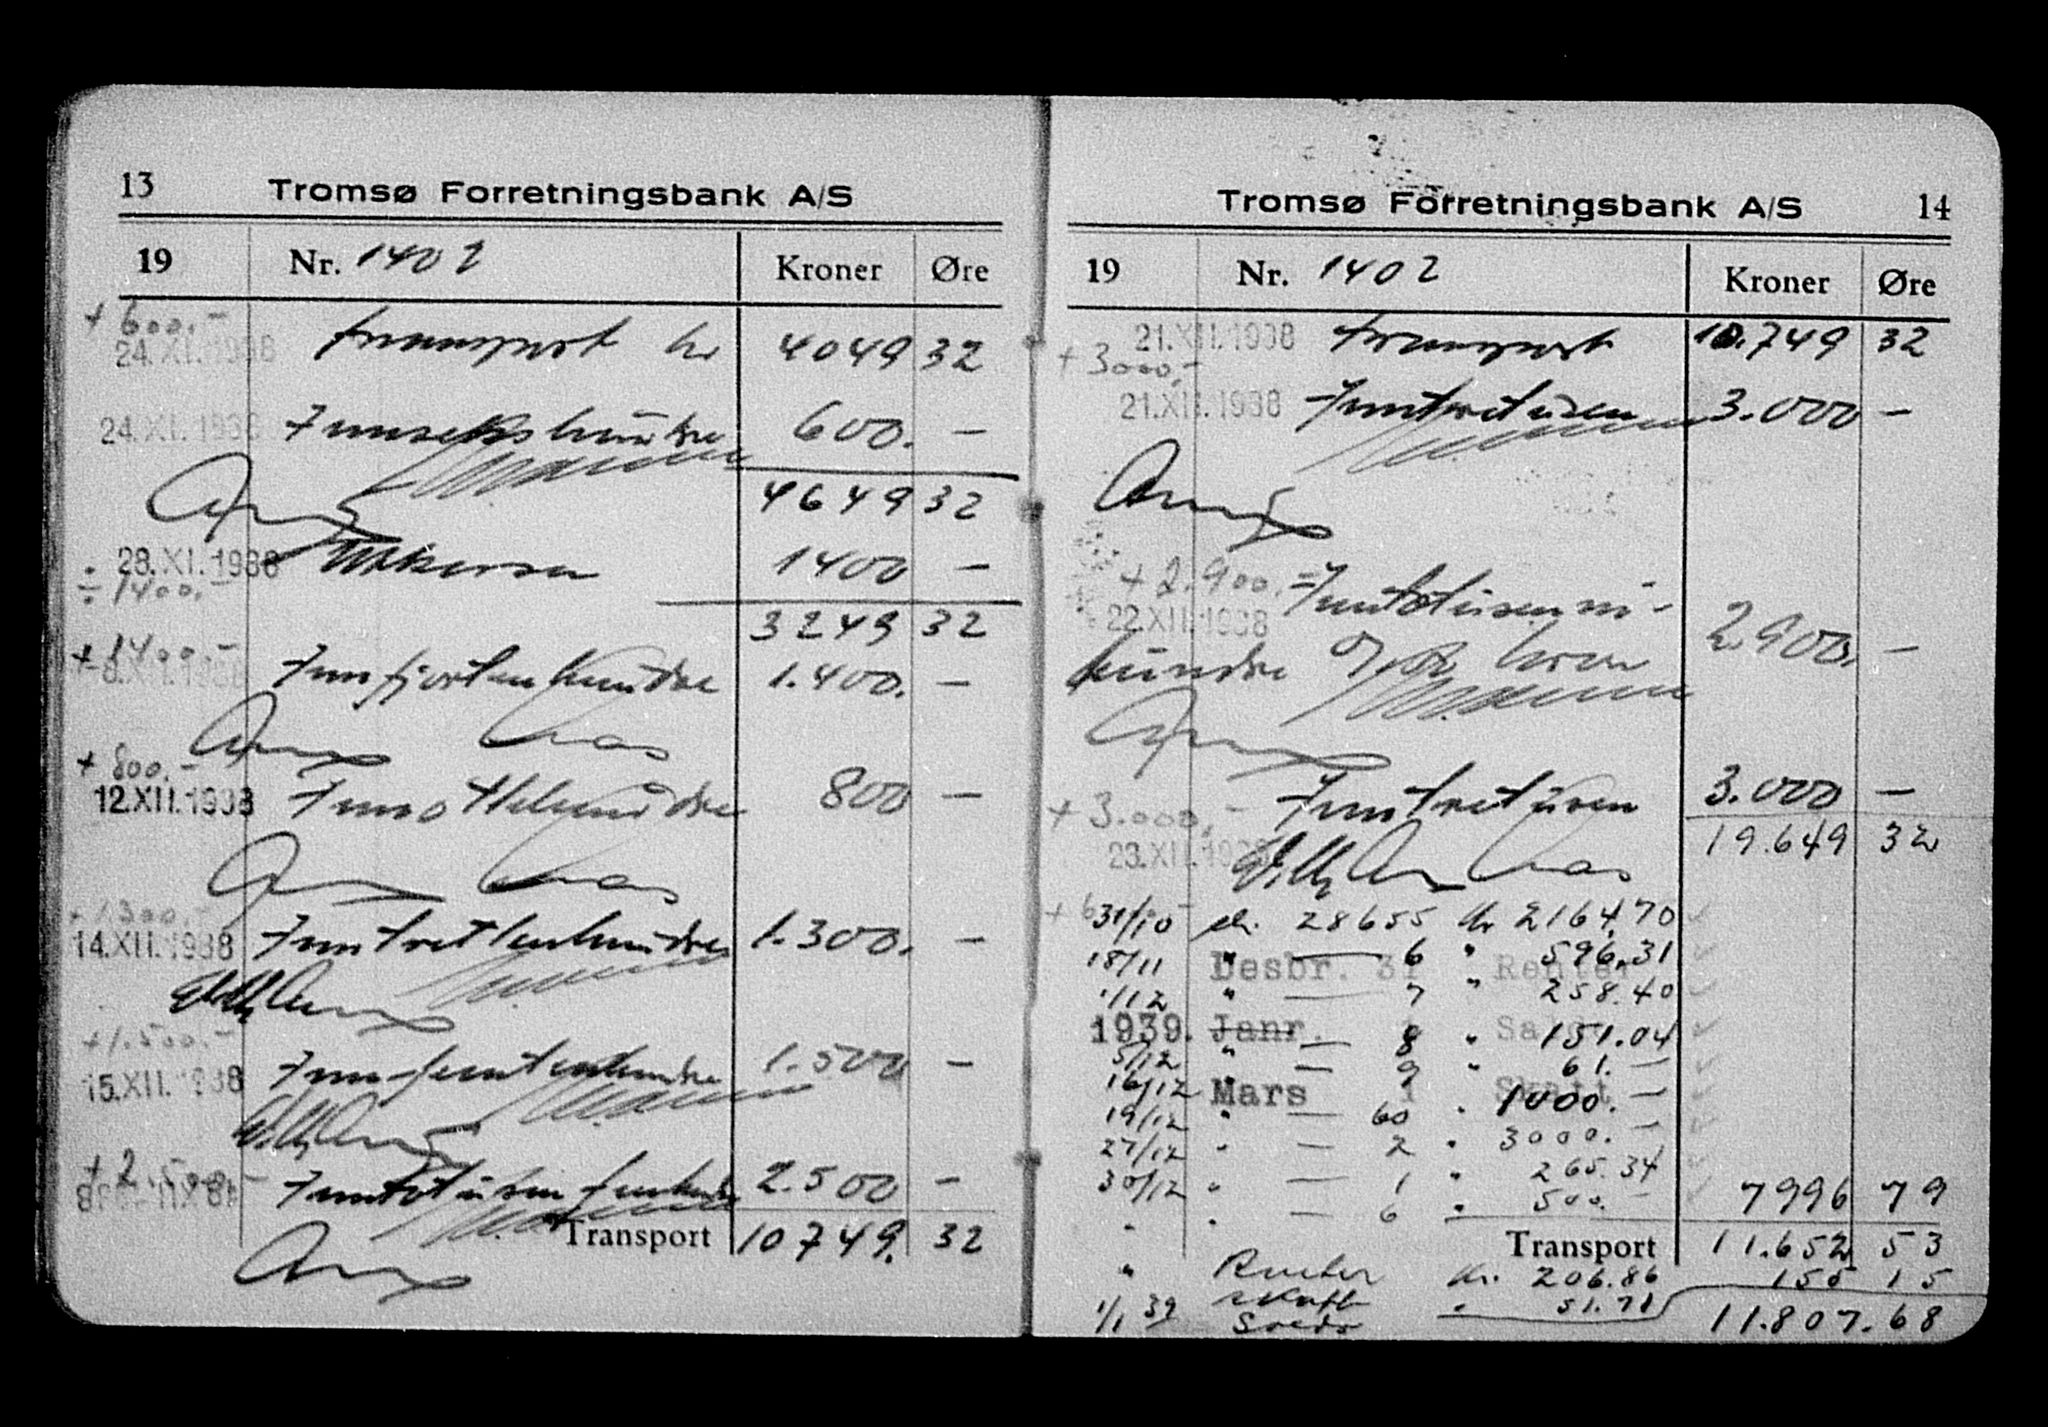 13
Tromsø Forretningsbank A/S
19 Nr. 1402 Kroner Øre
+ 600.-
24.XI.1938 transport kr 4049 32
24.XI.1938 600. —
4649 32
28.XI.1938 1400 —
÷ 1400.-
3249 32
+ 1400.-
8.XII.1938 Inn fjortenhundre 1.400. —
+ 800.-
12.XII.1938 Inn ottehundre 800 —
+ 1.300.-
14.XII.1938 Inn trettenhundre 1.300. —
+ 1.500.-
15.XII.1938 Inn femtenhundre 1.500 —
+ 2.500.-
2.500 —
Transport 10749. 32
Tromsø Forretningsbank A/S 14
19 Nr. 1402 Kroner Øre
21.XII.1938 transport 10.749 32
+ 3000.-
21.XII.1938 Inn tretusen 3.000 —
+ 2.900.- Inn totusen ni-
22.XII.1938 hundre 2.900. —
Inn tretusen 3.000 —
+ 3.000.-
23.XII.1938 19.649 32
31/10 28655 kr 2164,70
18/11 " — 6 " 596.31
Desbr. 31 Renter
1/12 " — 7 " 258.40
1939. Janr. 1 Saldo
5/12 " — 8 " 151.04
16/12 " — 9 " 61.—
Mars 1 Skatt
19/12 " — 60 " 1000.—
27/12 " — 2 " 3000.—
30/12 " — 1 " 265.34
" " — 6 " 500.— 7996 79
Transport 11.652 53
" Renter kr. 206.86 155 15
skatt " 51.71
1/1 39 Saldo 11.807.68